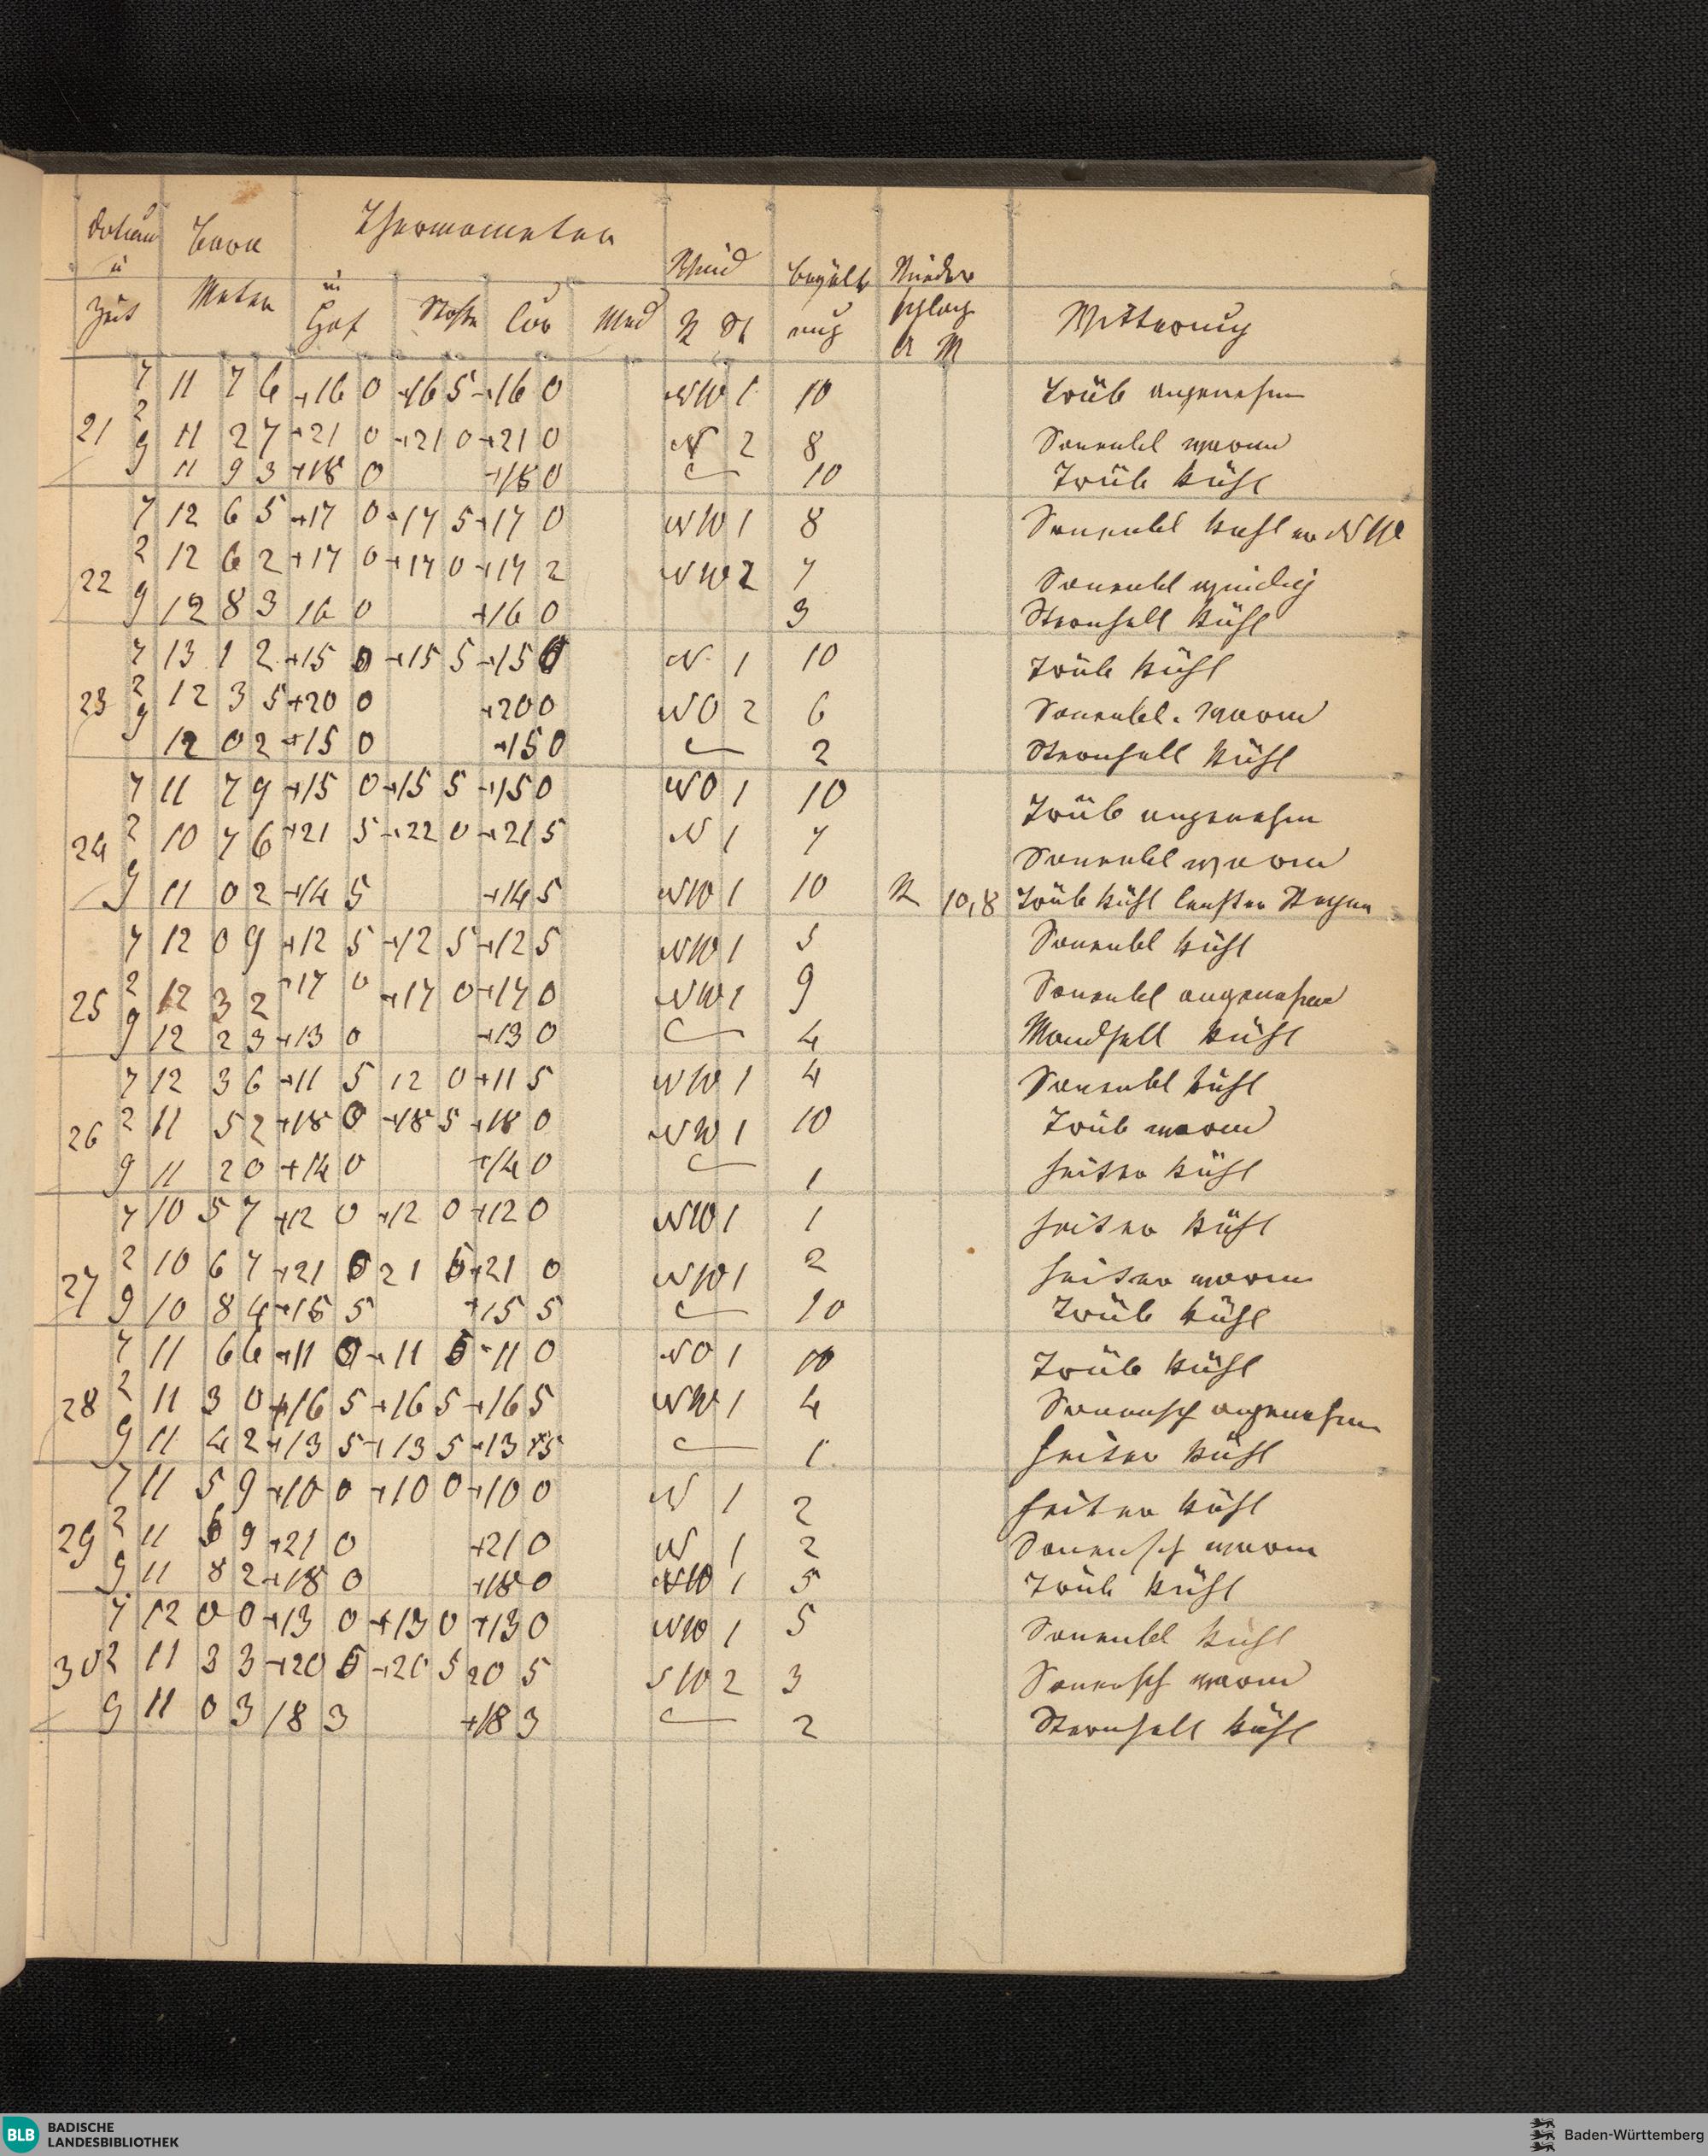 Datum Baro Thermometer
u in Wind Bewölk Nieder
Zeit Meter Hof Straße Cor Med R St ung schlag Witterung
A M
7 11 7 6 +16 0 +16 5 +16 0 NW 1 10 Trüb angenehm
21 2 11 2 7 +21 0 +21 0 +21 0 N 2 8 Sonenbl warm
9 11 9 3 +18 0 +18 0 10 Trüb kühl
7 12 6 5 +17 0 +17 5 +17 0 NW 1 8 Sonenbl kuhl NW
22 2 12 6 2 +17 0 +17 0 +17 2 NW 2 7 Sonenbl windig
9 12 8 3 16 0 +16 0 3 Sternhell kühl
7 13 1 2 +15 0 +15 5 +15 0 N 1 10 Trüb kühl
23 2 12 3 5 +20 0 +20 0 NO 2 6 Sonenbl. warm
9 12 0 2 +15 0 +15 0 2 Sternhell kühl
7 11 7 9 +15 0 +15 5 +15 0 NO 1 10 Trüb angenehm
24 2 10 7 6 +21 5 +22 0 +21 5 N 1 7 Sonenbl warm
9 11 0 2 +14 5 +14 5 NW 1 10 R 10,8 Trüb kühl Regen
7 12 0 9 +12 5 +12 5 +12 5 NW 1 5 Sonenbl kühl
25 2 12 3 2 +17 0 +17 0 +17 0 NW 1 9 Sonenbl angenehm
9 12 2 3 +13 0 +13 0 4 Mondhell kühl
7 12 3 6 +11 5 12 0 +11 5 NW 1 4 Sonenbl kühl
26 2 11 5 2 +18 0 +18 5 +18 0 NW 1 10 Trüb warm
9 11 2 0 +14 0 +14 0 1 heiter kühl
7 10 5 7 +12 0 +12 0 +12 0 NW 1 1 heiter kühl
27 2 10 6 7 +21 0 21 5 +21 0 NW 1 2 heiter warm
9 10 8 4 +15 5 +15 5 10 Trüb kühl
7 11 6 6 +11 0 +11 5 +11 0 NO 1 10 Trüb kühl
28 2 11 3 0 +16 5 +16 5 +16 5 NW 1 4 Sonensch angenehm
9 11 4 2 +13 5 +13 5 +13 5 1 heiter kühl
7 11 5 9 +10 0 +10 0 +10 0 N 1 2 heiter kühl
29 2 11 6 9 +21 0 +21 0 N 1 2 Sonensch warm
9 11 8 2 +18 0 +18 0 NW 1 5 Trüb kühl
7 12 0 0 +13 0 +13 0 +13 0 NW 1 5 Sonenbl kühl
30 2 11 3 3 +20 5 +20 5 20 5 SW 2 3 Sonensch warm
9 11 0 3 18 3 +18 3 2 Sternhell kühl
BLB BADISCHE
LANDESBIBLIOTHEK
Baden-Württemberg